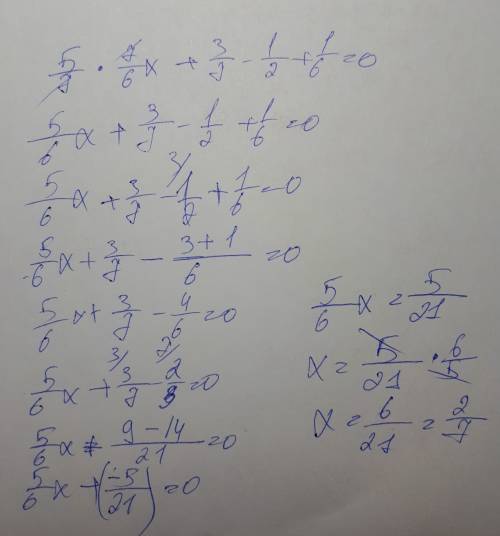 5/7 · 7/6 x + 3/7 - 1/2 + 1/6 = 0
5/6 x + 3/7 - 1/2 + 1/6 = 0
5/6 x + 3/7 - 3/ 1/2 + 1/6 = 0
5/6 x + 3/7 - (3+1)/6 = 0
5/6 x + 3/7 - 4/6 = 0
5/6 x + 3/ 3/7 - 7/ 2/3 = 0
5/6 x + (9-14)/21 = 0
5/6 x + (-5/21) = 0
5/6 x = 5/21
x = 5/21 · 6/5
x = 6/21 = 2/7